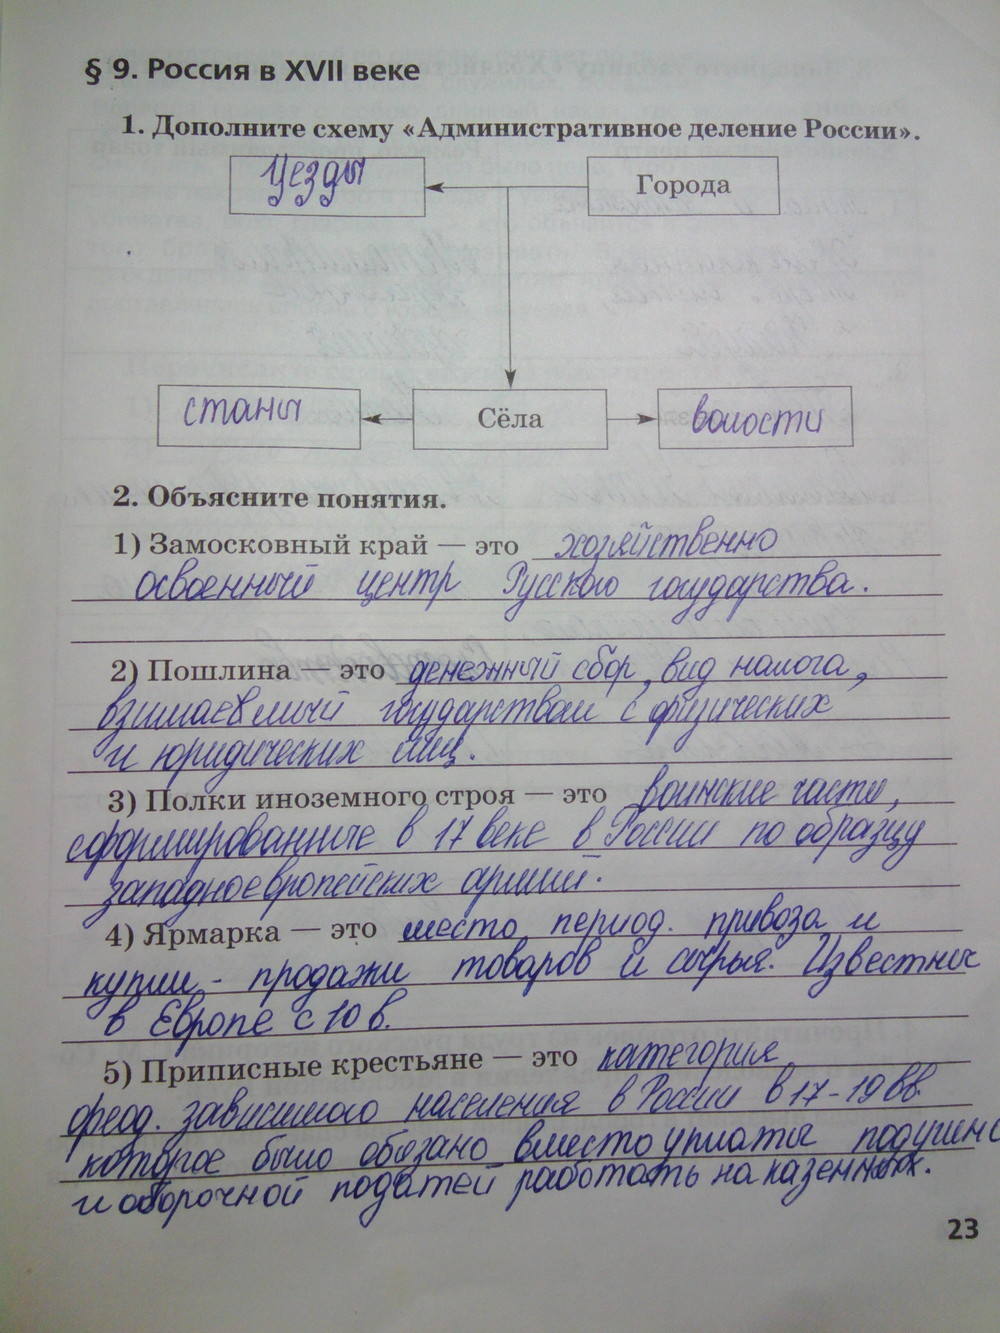 § 9. Россия в XVII веке
1. Дополните схему «Административное деление России».
Уезды
Города
станы
Сёла
волости
2. Объясните понятия.
1) Замосковный край — это хозяйственно
освоенный центр Русского государства.
2) Пошлина — это денежный сбор, вид налога,
взимаевмый государством с физических
и юридических лиц.
3) Полки иноземного строя — это воинские части,
сформированные в 17 веке в России по образцу
западноевропейских армий.
4) Ярмарка — это место период. привоза и
купли - продажи товаров и сырья. Известны
в Европе с 10 в.
5) Приписные крестьяне — это категория
феод. зависимого населения в России в 17-19 вв.
которое было обязано вместо уплаты подушно
и оброчной податей работать на казенных.
23